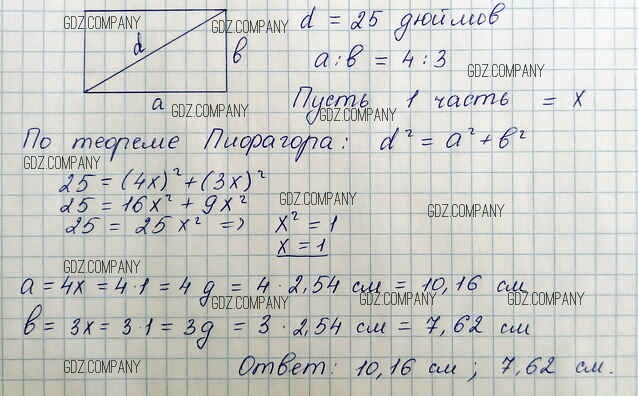 GDZ.COMPANY
d
в
a
d = 25 дюймов
GDZ.COMPANY
a : в = 4 : 3
GDZ.COMPANY
GDZ.COMPANY
Пусть 1 часть = x
GDZ.COMPANY
По теореме Пифагора: d² = a² + в²
GDZ.COMPANY
25 = (4x)² + (3x)²
25 = 16x² + 9x²
25 = 25x² => x² = 1
x = 1
GDZ.COMPANY
GDZ.COMPANY
GDZ.COMPANY
a = 4x = 4·1 = 4 g = 4 · 2,54 см = 10,16 см
GDZ.COMPANY
GDZ.COMPANY
GDZ.COMPANY
в = 3x = 3·1 = 3g = 3 · 2,54 см = 7,62 см
GDZ.COMPANY
Ответ: 10,16 см ; 7,62 см.